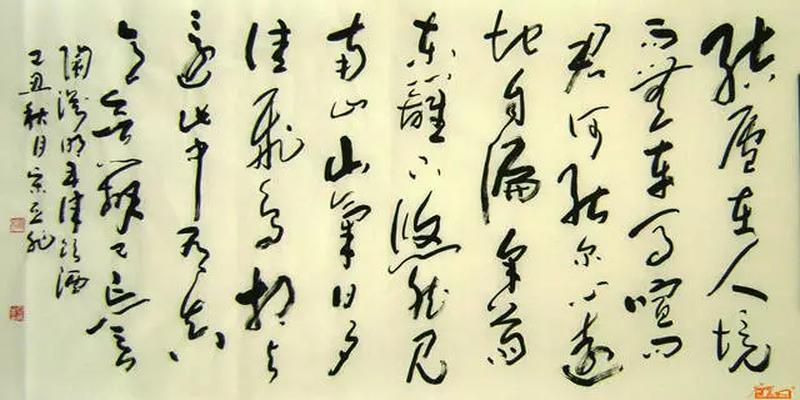 結廬在人境
而無車馬喧問
君何能尔心遠
地自偏采菊
東籬下悠然見
南山山氣日夕
佳飛鳥相与
還此中有真
意欲辨已忘言
陶淵明五律飲酒
己丑秋日